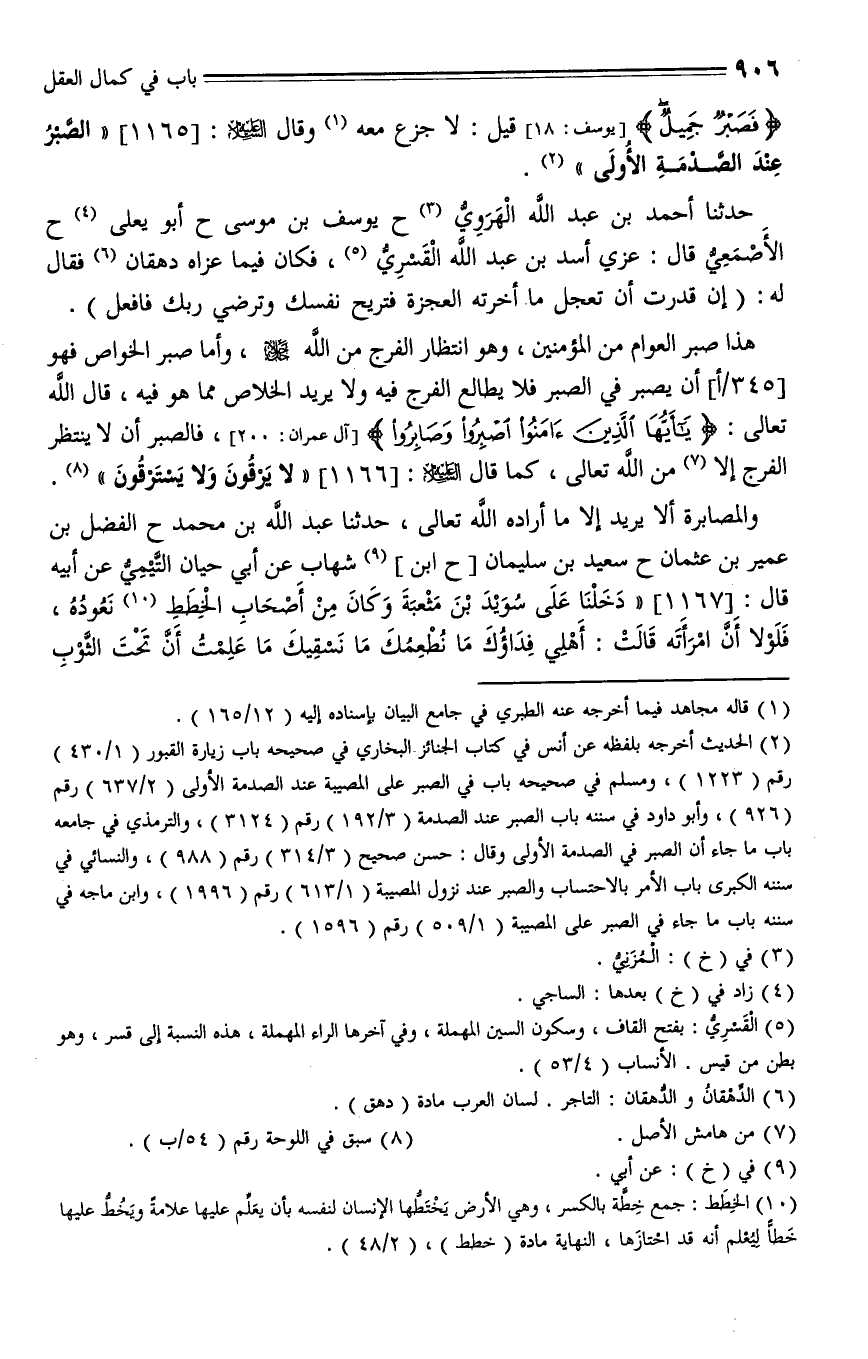 ٩٠٦ باب في كمال العقل
﴿ فَصَبْرٌ جَمِيلٌ ﴾ [يوسف: ١٨] قيل : لا جزع معه (١) وقال عليه السلام : [١١٦٥] « الصَّبْرُ
عِنْدَ الصَّدْمَةِ الأُولَى » (٢) .
حدثنا أحمد بن عبد الله الْهَرَوِيُّ (٣) ح يوسف بن موسى ح أبو يعلى (٤) ح
الأَصْمَعِيُّ قال : عزي أسد بن عبد الله الْقَسْرِيُّ (٥) ، فكان فيما عزاه دهقان (٦) فقال
له : ( إن قدرت أن تعجل ما أخرته العجزة فتريح نفسك وترضي ربك فافعل ) .
هذا صبر العوام من المؤمنين ، وهو انتظار الفرج من الله ﷻ ، وأما صبر الخواص فهو
[٣٤٥/أ] أن يصبر في الصبر فلا يطالع الفرج فيه ولا يريد الخلاص مما هو فيه ، قال الله
تعالى : ﴿ يَٰٓأَيُّهَا ٱلَّذِينَ ءَامَنُوا۟ ٱصْبِرُوا۟ وَصَابِرُوا۟ ﴾ [آل عمران: ٢٠٠] ، فالصبر أن لا ينتظر
الفرج إلا (٧) من الله تعالى ، كما قال عليه السلام : [١١٦٦] « لا يَرْقُونَ وَلا يَسْتَرْقُونَ » (٨) .
والمصابرة ألا يريد إلا ما أراده الله تعالى ، حدثنا عبد الله بن محمد ح الفضل بن
عمير بن عثمان ح سعيد بن سليمان [ ح ابن ] (٩) شهاب عن أبي حيان التَّيْمِيُّ عن أبيه
قال : [١١٦٧] « دَخَلْنَا عَلَى سُوَيْدَ بْنَ مَثْعِبَةَ وَكَانَ مِنْ أَصْحَابِ الْخِطَطِ (١٠) نَعُودُهُ ،
فَلَوْلا أَنَّ امْرَأَتَه قَالَتْ : أَهْلِي فِدَاؤُكَ مَا نُطْعِمُكَ مَا نَسْقِيكَ مَا عَلِمْتُ أَنَّ تَحْتَ الثَّوْبِ
(١) قاله مجاهد فيما أخرجه عنه الطبري في جامع البيان بإسناده إليه ( ١٦٥/١٢ ) .
(٢) الحديث أخرجه بلفظه عن أنس في كتاب الجنائز البخاري في صحيحه باب زيارة القبور ( ٤٣٠/١ )
رقم ( ١٢٢٣ ) ، ومسلم في صحيحه باب في الصبر على المصيبة عند الصدمة الأولى ( ٦٣٧/٢ ) رقم
( ٩٢٦ ) ، وأبو داود في سننه باب الصبر عند الصدمة ( ١٩٢/٣ ) رقم ( ٣١٢٤ ) ، والترمذي في جامعه
باب ما جاء أن الصبر في الصدمة الأولى وقال : حسن صحيح ( ٣١٤/٣ ) رقم ( ٩٨٨ ) ، والنسائي في
سننه الكبرى باب الأمر بالاحتساب والصبر عند نزول المصيبة ( ٦١٣/١ ) رقم ( ١٩٩٦ ) ، وابن ماجه في
سننه باب ما جاء في الصبر على المصيبة ( ٥٠٩/١ ) رقم ( ١٥٩٦ ) .
(٣) في ( خ ) : الْمُزَنِيُّ .
(٤) زاد في ( خ ) بعدها : الساجي .
(٥) الْقَسْرِيُّ : بفتح القاف ، وسكون السين المهملة ، وفي آخرها الراء المهملة ، هذه النسبة إلى قسر ، وهو
بطن من قيس . الأنساب ( ٥٣/٤ ) .
(٦) الدِّهْقَانُ و الدُّهقان : التاجر . لسان العرب مادة ( دهق ) .
(٧) من هامش الأصل . (٨) سبق في اللوحة رقم ( ٥٤/ب ) .
(٩) في ( خ ) : عن أبي .
(١٠) الخِطَط : جمع خِطَّة بالكسر ، وهي الأرض يَخْتَطُّها الإنسان لنفسه بأن يعَلِّم عليها علامةً ويَخُطُّ عليها
خَطاً لِيُعْلم أنه قد احْتازَها ، النهاية مادة ( خطط ) ، ( ٤٨/٢ ) .